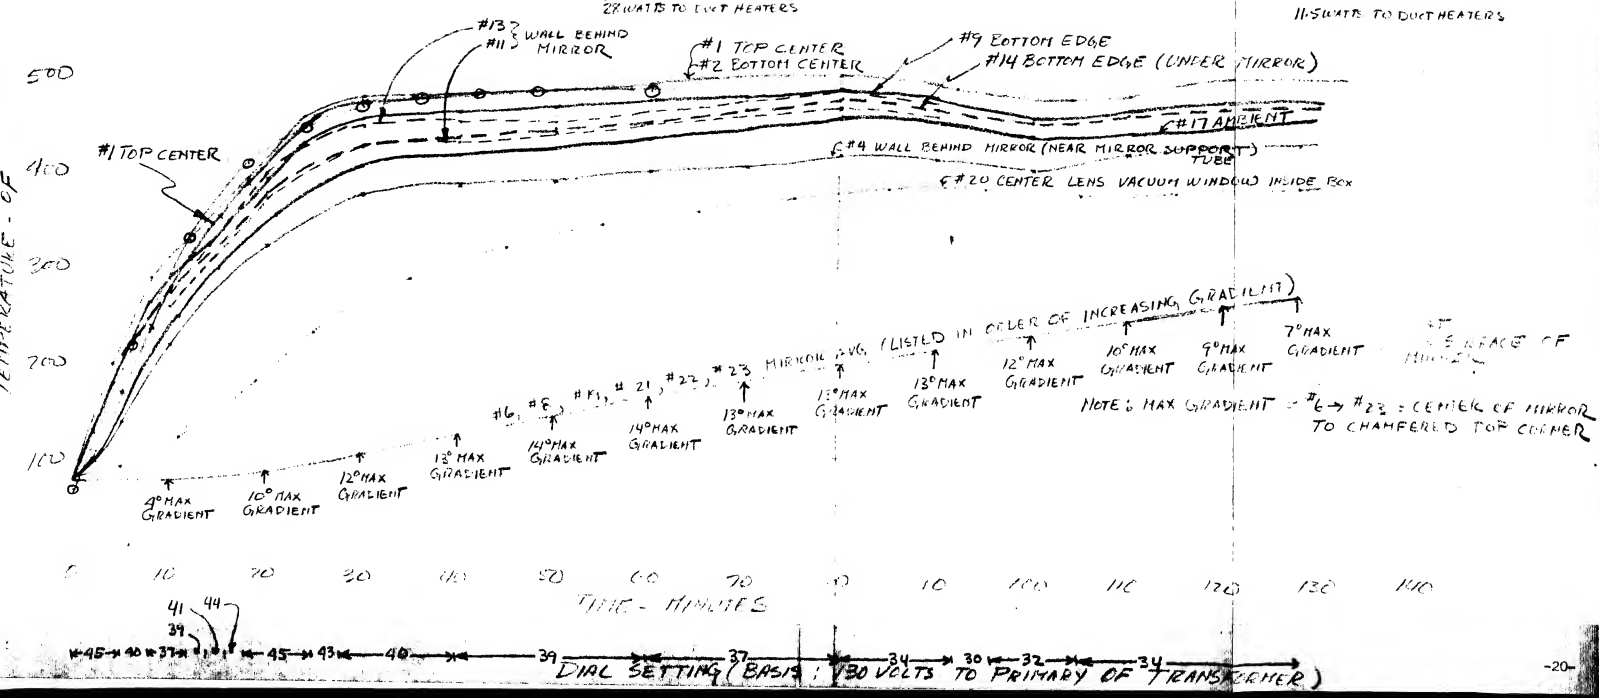 28 WATTS TO DUCT HEATERS
11.5 WATTS TO DUCT HEATERS
#13
#11
WALL BEHIND
MIRROR
#1 TOP CENTER
#2 BOTTOM CENTER
#9 BOTTOM EDGE
#14 BOTTOM EDGE (UNDER MIRROR)
500
#1 TOP CENTER
#17 AMBIENT
#4 WALL BEHIND MIRROR (NEAR MIRROR SUPPORT)
TUBE
400
#20 CENTER LENS VACUUM WINDOW INSIDE BOX
TEMPERATURE - OF
300
200
100
#6, #8, #21, #22, #23 MIRROR AVG (LISTED IN ORDER OF INCREASING GRADIENT)
4° MAX
GRADIENT
10° MAX
GRADIENT
12° MAX
GRADIENT
13° MAX
GRADIENT
14° MAX
GRADIENT
14° MAX
GRADIENT
13° MAX
GRADIENT
13° MAX
GRADIENT
13° MAX
GRADIENT
12° MAX
GRADIENT
10° MAX
GRADIENT
9° MAX
GRADIENT
7° MAX
GRADIENT
SURFACE OF
NOTE: MAX GRADIENT = #6 → #23 = CENTER OF MIRROR
TO CHAMFERED TOP CORNER
0 10 20 30 40 50 60 70 0 10 100 110 120 130 140
TIME - MINUTES
41 44
39
45 40 37 45 43 40 39 37 34 30 32 34
DIAL SETTING (BASIS: 130 VOLTS TO PRIMARY OF TRANSFORMER)
-20-